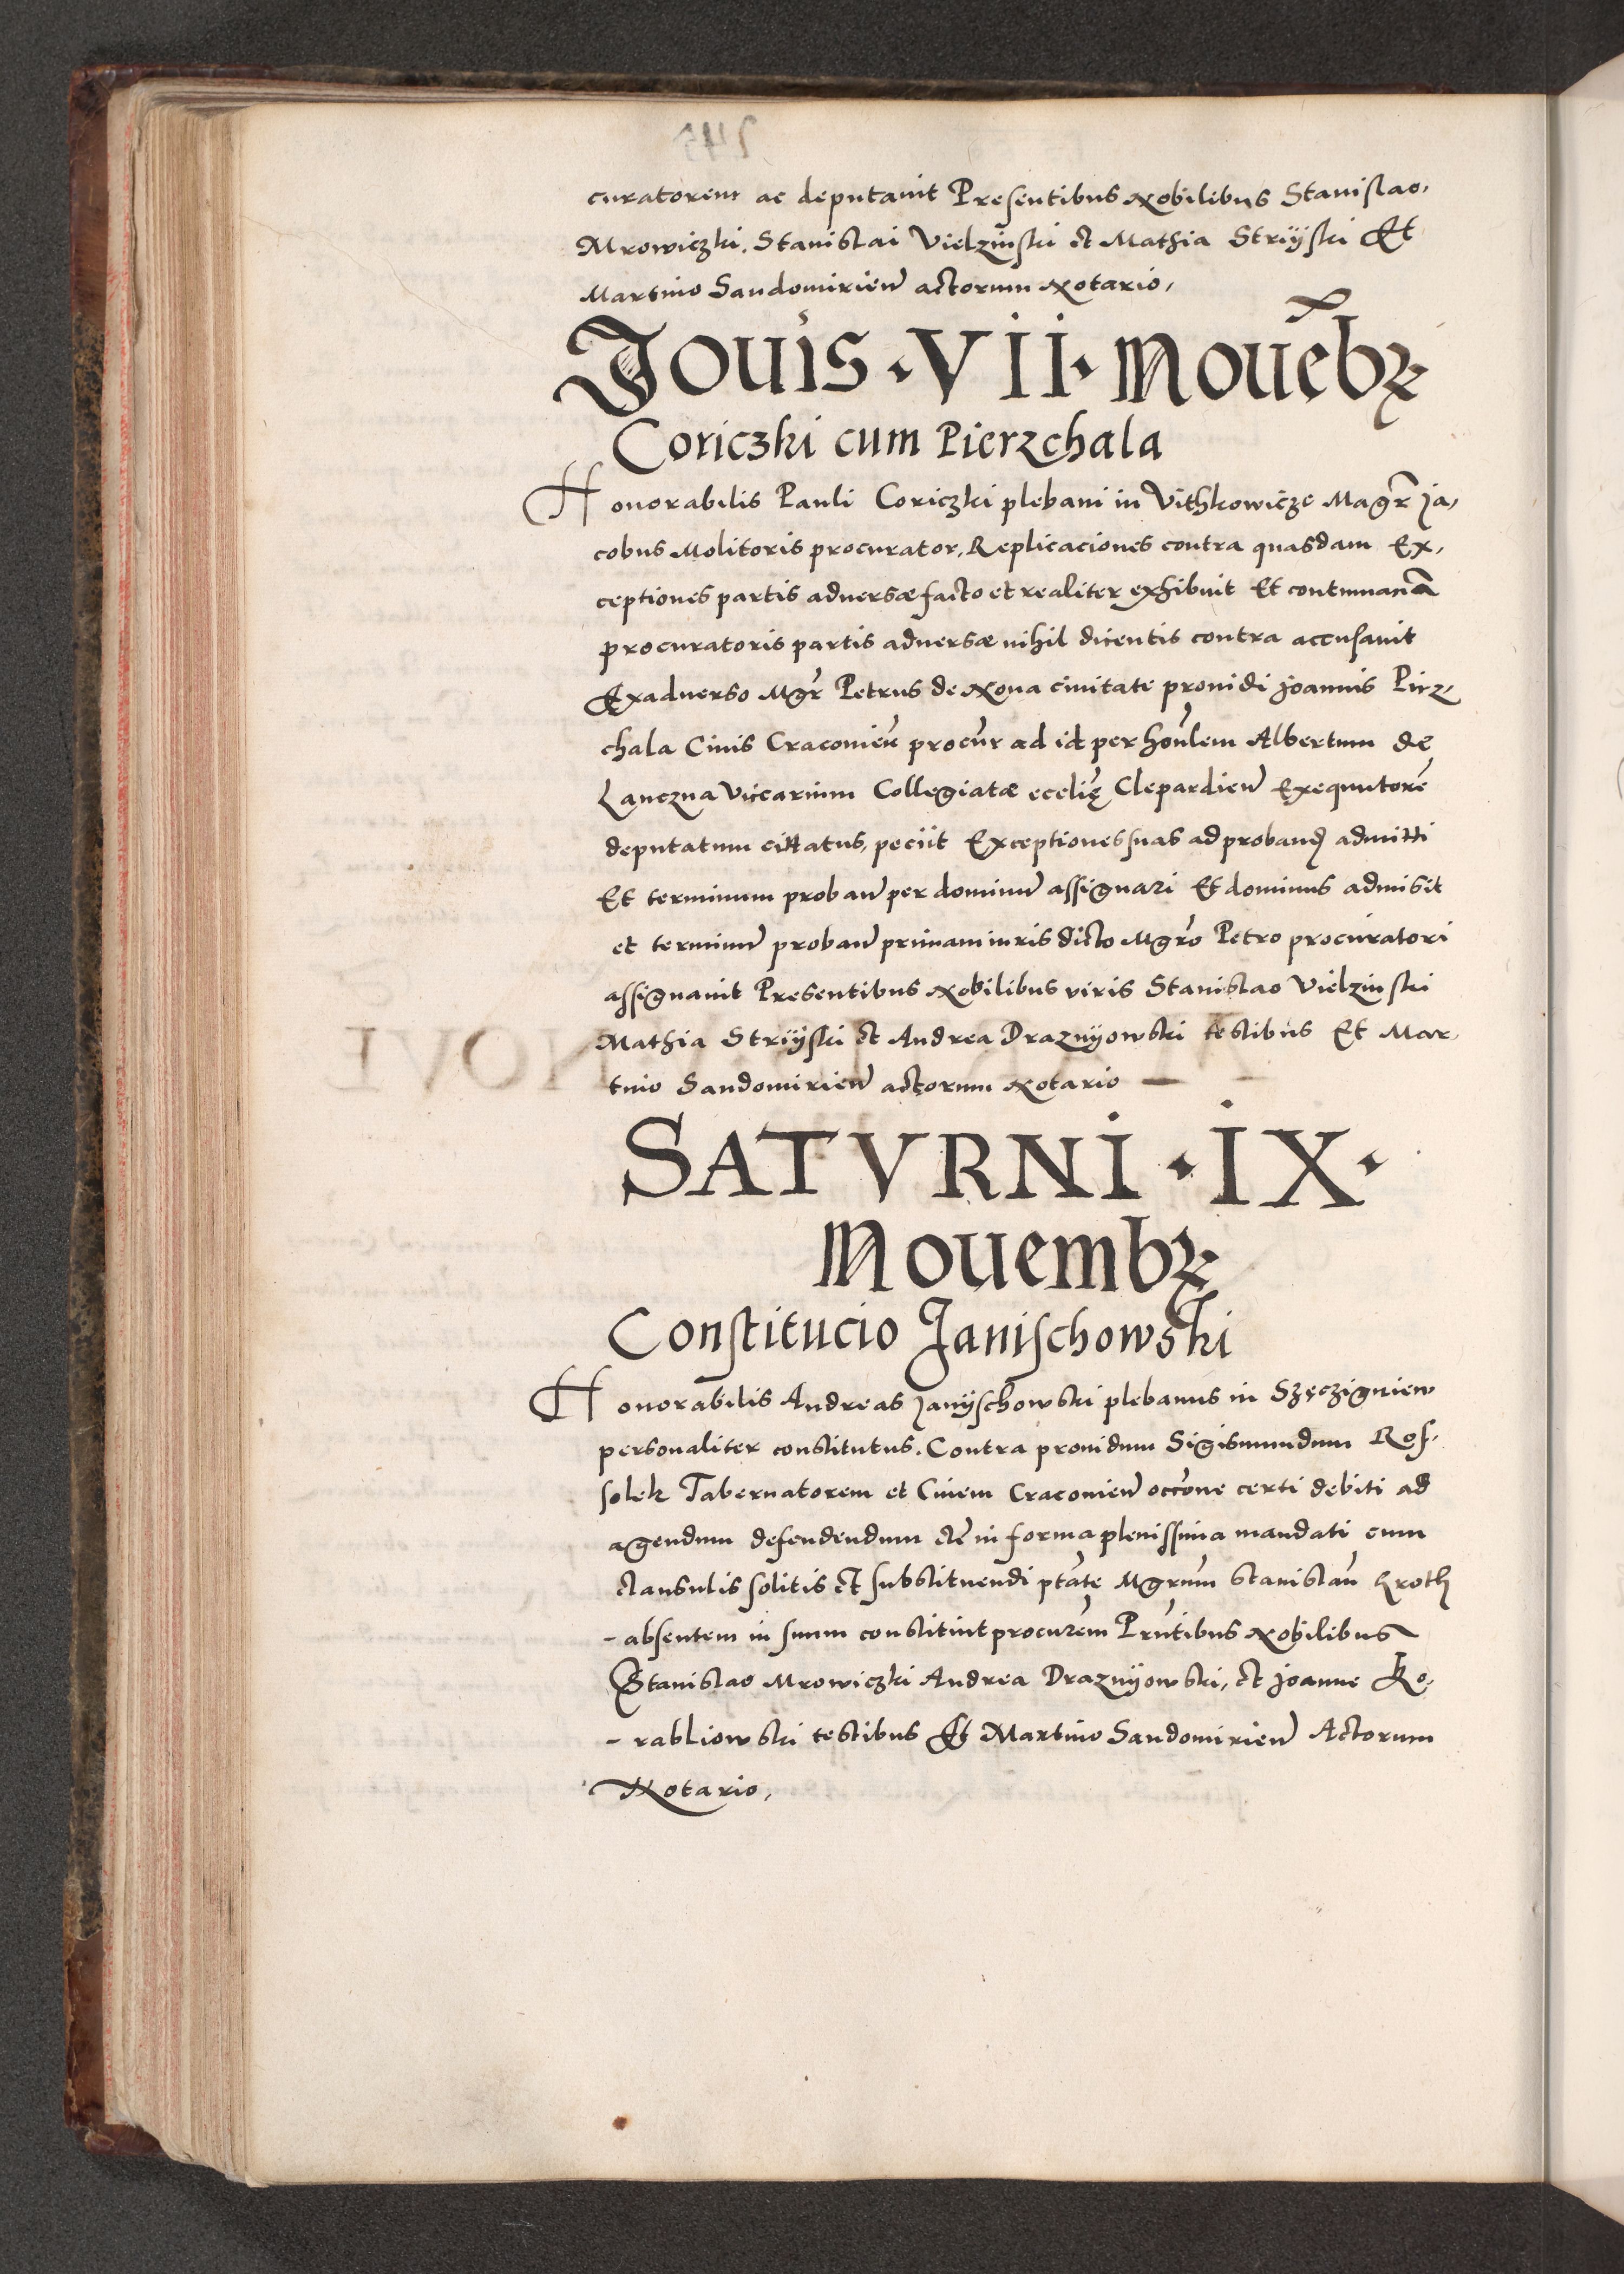 curatorem ac deputauit Presentibus Nobilibus Stanislao,
Mrowiczki. Stanislai Vielzinski et Mathia Strÿski Et
Martino Sandomirien̄ actorum Notario,
Jouis · VII · Nouēbꝛ
Coriczki cum Pierzchala
Honorabilis Pauli Coriczki plebani in Vithkowicze Magr̄ Ja,
cobus Molitoris procurator, Replicaciones contra quasdam Ex,
ceptiones partis aduersæ facto et realiter exhibuit Et contumaciā
procuratoris partis aduersæ nihil dicentis contra accusauit
Exaduerso Mgr̄ Petrus de Noua ciuitate prouidi Joannis Pirz,
chala Ciuis Cracouien̄ procur̄ ad id per hon̄lem Albertum de
Lanczna Vicearium Collegiatæ ecclię Clepardien̄ Exequutorē
deputatum cittatus, peciit Exceptiones suas ad proband̨ admitti
Et terminum proban̄ per dominum̄ assignari Et dominus admisit
et terminum̄ proban̄ primam iuris dicto Mgrō Petro procuratori
assignauit Presentibus Nobilibus viris Stanislao Vielzinski
Mathia Strÿski et Andrea Draznÿowski testibus Et Mar,
tino Sandomirien̄ actorum Notario —
SATVRNI · IX ·
Nouembꝛ
Constitucio Janischowski
Honorabilis Andreas Janÿschowski plebanus in Szęczigniew
personaliter constitutus. Contra prouidum Sigismundum Ros,
solek Tabernatorem et Ciuem Cracouien̄ occōne certi debiti ad
agendum defendendum etc̄ in forma plenissima mandati cum
clausulis solitis et substituendi ptāte Mgrūm Stanislaū Kroth
- absentem in suum constituit procurēm Prūtibus Nobilibus
Stanislao Mrowiczki Andrea Draznÿowski, et Joanne Ko,
- rabliowski testibus Et Martino Sandomirien̄ Actorum
Notario,